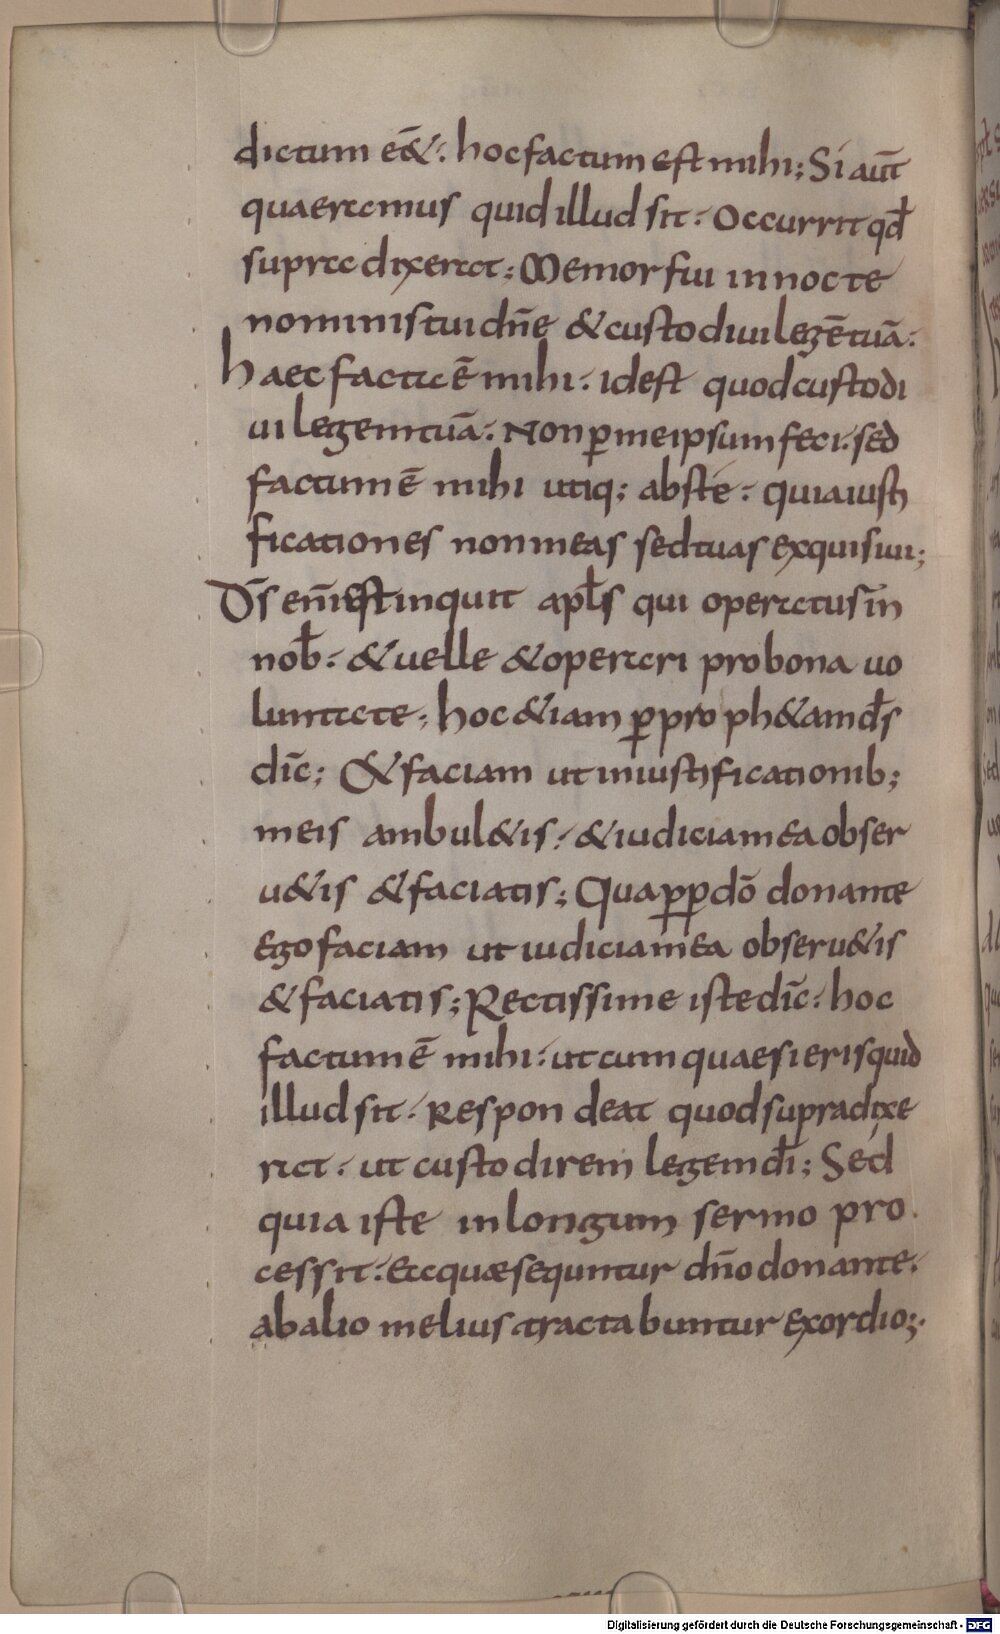 dictum eē&: hoc factum est mihi; Si aut̄
quaeremus quid illud sit: Occurrit qd̄
supra dixerat; Memor fui in nocte
nominis tui dn̄e & custodiui legē tuā:
haec facta ē mihi: idest quod custodi
ui legem tuā: Non ꝑ me ipsum feci: sed
factum ē mihi utiq; abs té: quia iusti
ficationes non meas sed tuas exquisiui;
D̄s eni̅ est inquit apl̄s qui operatus in̄
nob̄: & uelle & operari pro bona uo
luntate; hoc &iam ꝑ proph&am d̄s
dic̄; & faciam ut in iustificationib;
meis ambul&is: & iudicia mea obser
u&is & faciatis; Qua ꝓꝑ dō donante
Ego faciam ut iudicia mea obseru&is
& faciatis; Rectissime iste dic̄: hoc
factum ē mihi: ut cum quaesieris quid
illud sit: Respondeat quod supra dixe
rat: ut custodirem legem dī; Séd
quia iste in longum sermo pro
cessit: Ea quae sequntur dn̄o donante:
ab alio melius tractabuntur exordio;
Digitalisierung gefördert durch die Deutsche Forschungsgemeinschaft - DFG